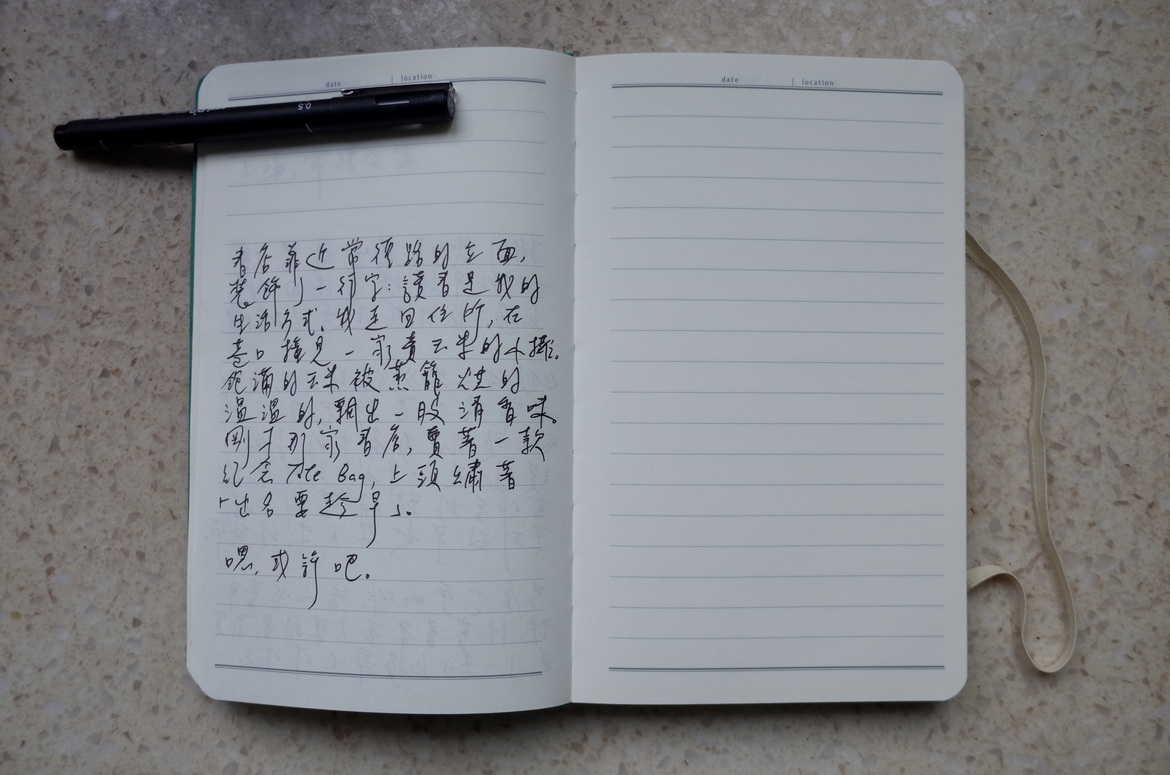 date | location
date | location
0.5
書店靠近常德路的立面,
裝飾了一行字:讀書是我的
生活方式。我走回住所,在
巷口撞見一家賣玉米的小攤。
飽滿的玉米被蒸籠烘的
溫溫的,飄出一股清香味。
剛才那家書店,賣著一款
紀念 Tote Bag,上頭繡著
「出名要趁早」。
嗯,或許吧。